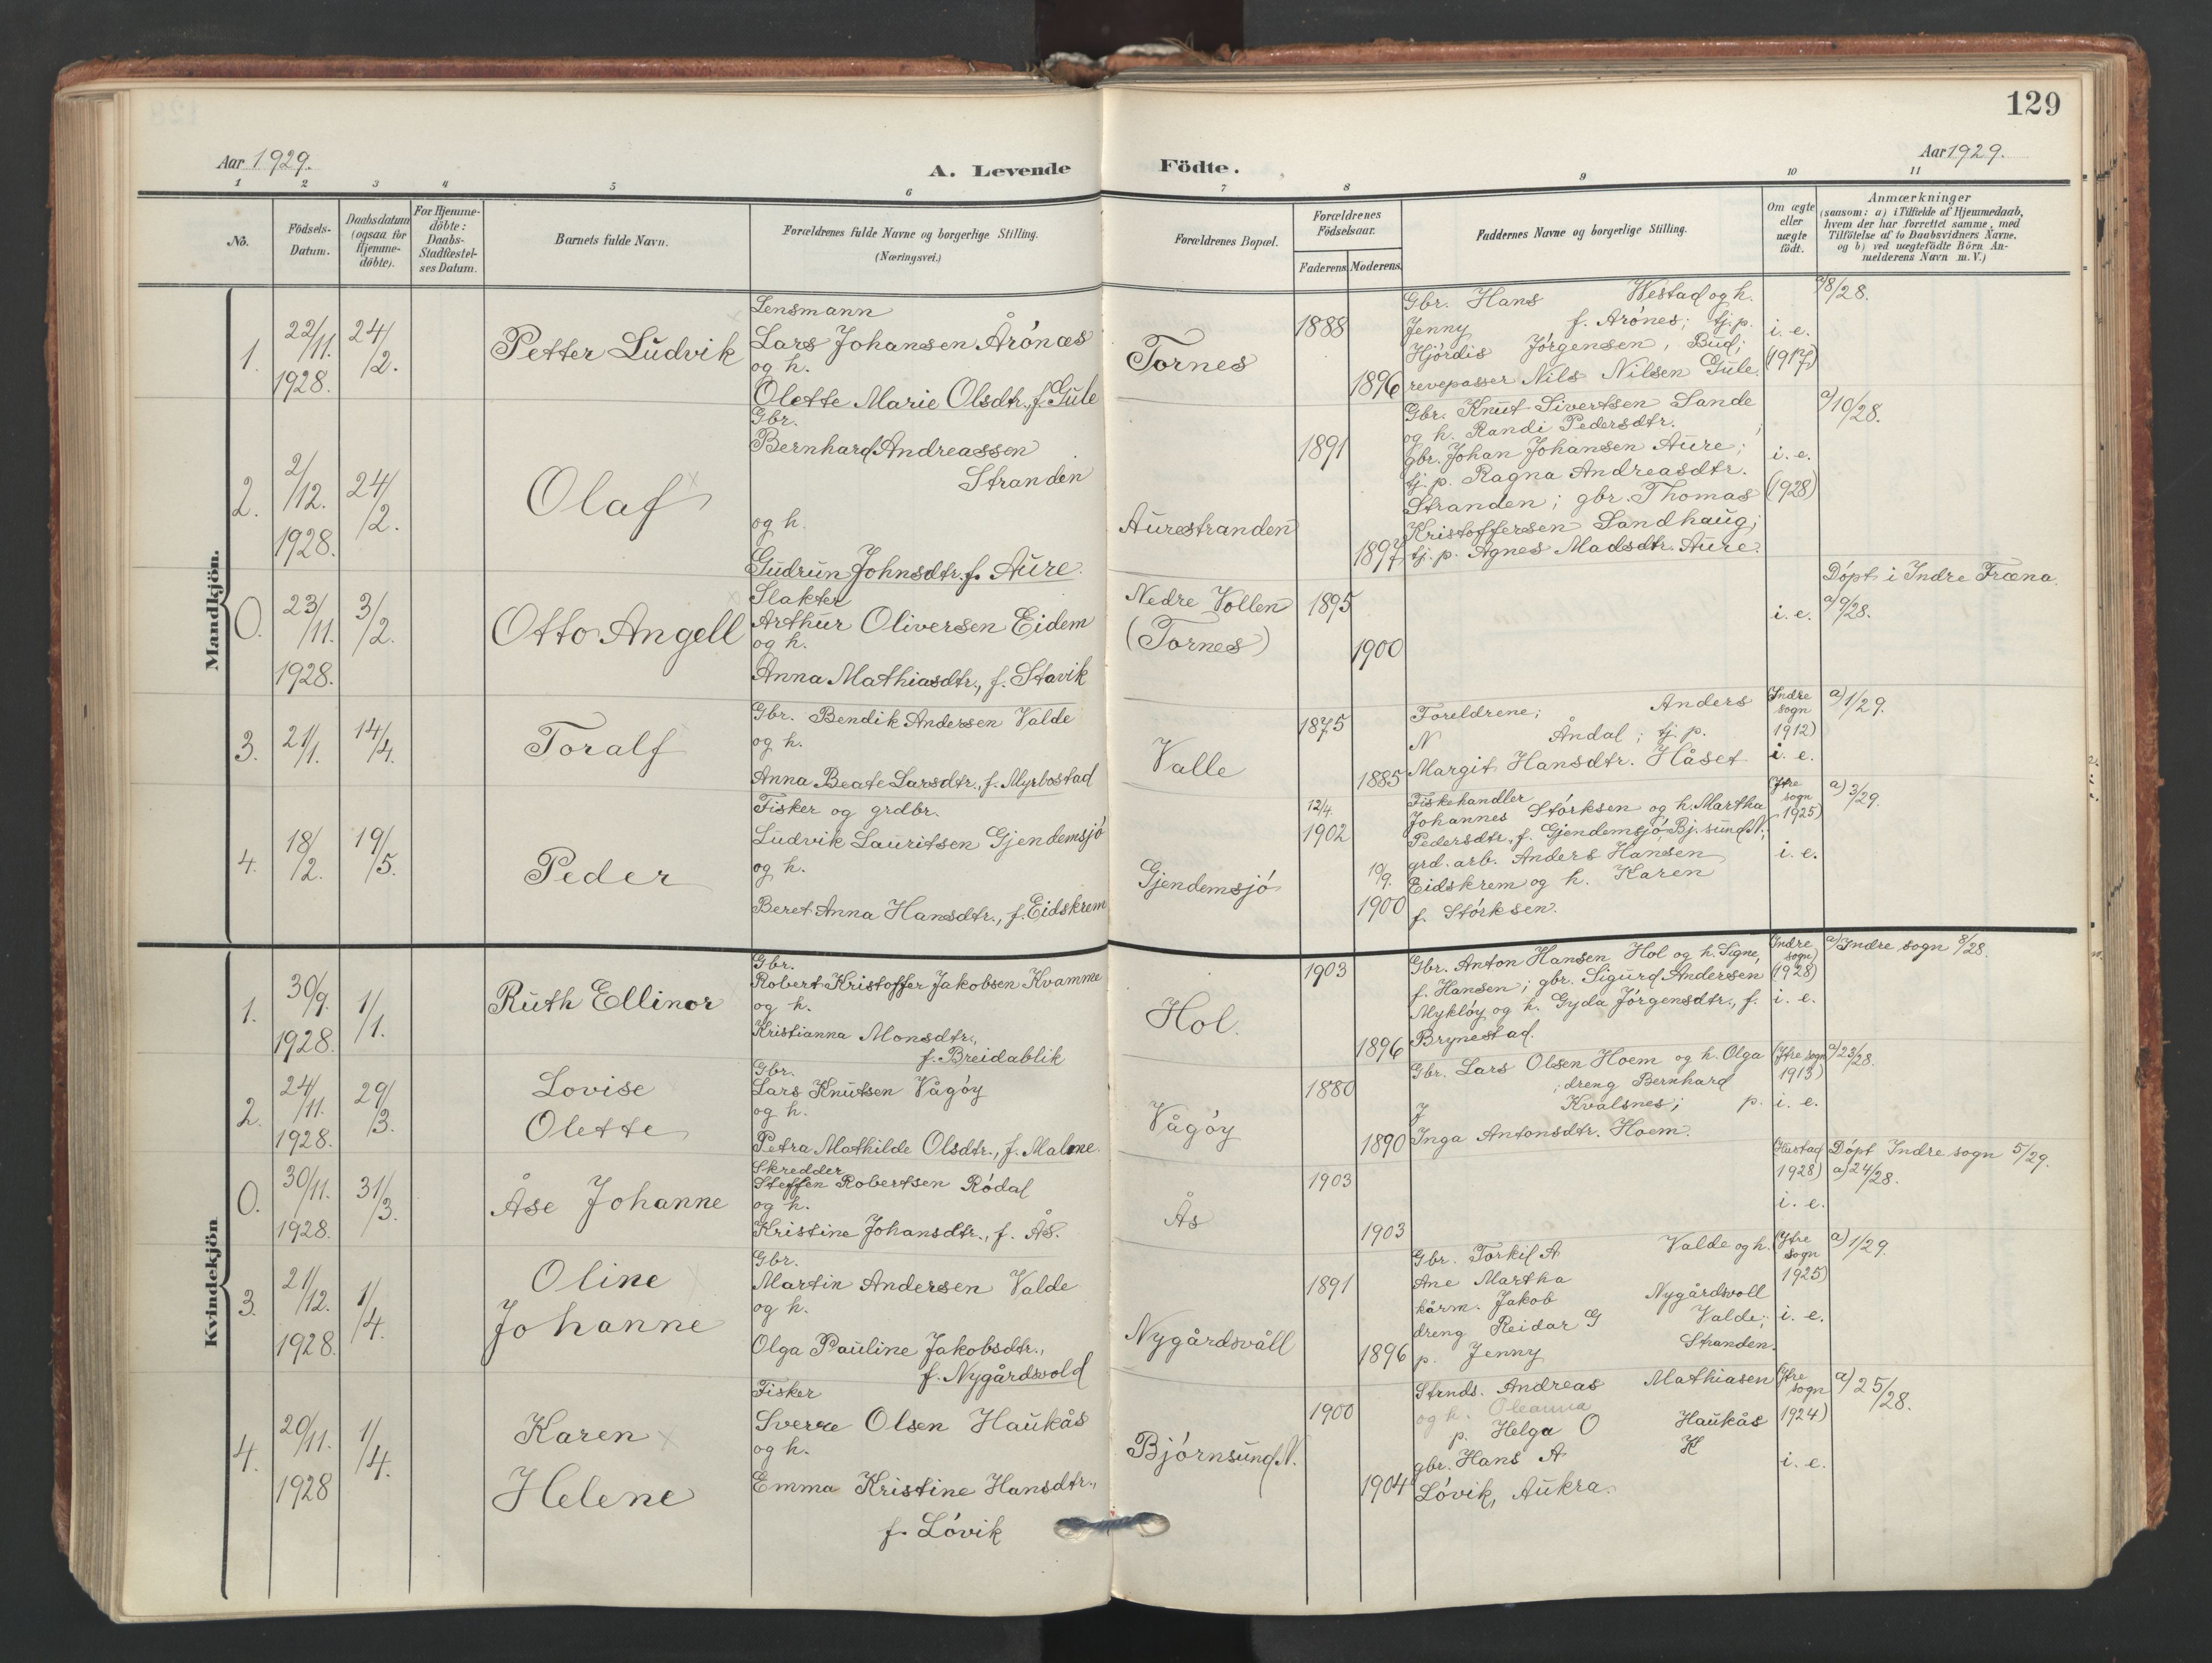 129
Aar 1929.
A. Levende Födte.
Aar 1929.
1 2 3 4 5 6 7 8 9 10 11
No.
Födsels-Datum.
Daabsdatum (ogsaa for Hjemme-döbte).
For Hjemme-döbte: Daabs-Stadfæstel-ses Datum.
Barnets fulde Navn.
Forældrenes fulde Navne og borgerlige Stilling.
(Næringsvei.)
Forældrenes Bopæl.
Forældrenes Födselsaar.
Faderens. Moderens.
Faddernes Navne og borgerlige Stilling.
Om ægte eller uægte födt.
Anmærkninger
(saasom: a) i Tilfælde af Hjemmedaab,
hvem der har forrettet samme, med
Tilföielse af to Daabsvidners Navne.
og b) ved uægtefödte Börn An-
melderens Navn m. V.)
Mandkjön.
1.
22/11.
1928.
24/2.
Petter Ludvik
Lensmann
Lars Johansen Årönæs
og h.
Olette Marie Olsdtr., f. Gule
Tornes
1888
1896
Gbr. Hans Westad og h.
Jenny f. Arönes; tj. p.
Hjördis Jörgensen, Bud;
revepasser Nils Nilsen Gule.
i. e.
(1917)
a/8/28.
2.
2/12.
1928.
24/2.
Olaf
Gbr.
Bernhard Andreassen
Stranden
og h.
Gudrun Johnsdtr. f. Aure.
Aurestranden
1891
1897
Gbr. Knut Sivertsen Sande
og h. Randi Pedersdtr. ;
gbr. Johan Johansen Aure;
tj. p. Ragna Andreasdtr.
Stranden; gbr. Thomas
Kristoffersen Sandhaug;
tj. p. Agnes Madsdtr. Aure.
i. e.
(1928)
a/10/28.
0.
23/11.
1928.
3/2.
Otto Angell
Slakter
Arthur Oliversen Eidem
og h.
Anna Mathiasdtr., f. Stavik
Nedre Vollen
(Tornes)
1895
1900
i. e.
Döpt i Indre Fræna.
a/9/28.
3.
21/1.
14/4.
Toralf
Gbr. Bendik Andersen Valde
og h.
Anna Beate Larsdtr., f. Myrbostad
Valle
1875
1885
Foreldrene; Anders
N Åndal; tj. p.
Margit Hansdtr. Håset
(Indre sogn
1912)
i. e.
a) 1/29.
4.
18/2.
19/5.
Peder
Fisker og grdbr.
Ludvik Lauritsen Gjendemsjö
og h.
Beret Anna Hansdtr., f. Eidskrem
Gjendemsjö
12/4.
1902
10/9.
1900
Fiskehandler
Johannes Störksen og h. Martha
Pedersdtr., f. Gjendemsjö, Bj.sund N.;
grd. arb. Anders Hansen
Eidskrem og h. Karen
f. Störksen.
(Ytre sogn
1925)
i. e.
a) 3/29.
Kvindekjön
1.
30/9.
1928.
1/1.
Ruth Ellinor
Gbr.
Robert Kristoffer Jakobsen Kvamme
og h.
Kristianna Monsdtr.,
f. Breidablik
Hol.
1903
1896
Gbr. Anton Hansen Hol og h. Signe,
f. Hansen; gbr. Sigurd Andersen
Myklöy og h. Gyda Jörgensdtr., f.
Brynestad.
(Indre sogn)
(1928)
i. e.
a) Indre sogn 8/28.
2.
24/11.
1928.
29/3.
Lovise
Olette
Gbr.
Lars Knutsen Vågöy
og h.
Petra Mathilde Olsdtr., f. Malme.
Vågöy
1880
1890
Gbr. Lars Olsen Hoem og h. Olga
; dreng Bernhard
J Kvalsnes; p.
Inga Antonsdtr. Hoem.
(Ytre sogn
1913)
i. e.
a/23/28.
0.
30/11.
1928.
31/3.
Åse Johanne
Skredder
Steffen Robertsen Rödal
og h.
Kristine Johansdtr., f. Ås.
Ås
1903
1903
(Hustad
1928)
i. e.
Döpt Indre sogn 5/29.
a) 24/28.
3.
21/12.
1928.
1/4.
Oline
Johanne
Gbr.
Martin Andersen Valde
og h.
Olga Pauline Jakobsdtr.,
f. Nygårdsvold
Nygårdsvåll
1891
1896
Gbr. Torkil A Valde og h.
Ane Martha
kårm. Jakob Nygårdsvoll
dreng Reidar G Valde;
p. Jenny Stranden.
(Ytre sogn
1925)
i. e.
a) 1/29.
4.
20/11.
1928
1/4.
Karen
Helene
Fisker
Sverre Olsen Haukås
og h.
Emma Kristine Hansdtr.,
f. Lövik
Björnsund N.
1900
1904
Strnds. Andreas Mathiasen
og h. Oleanna
p. Helga O Haukås
gbr. Hans A K
Lövik, Aukra.
(Ytre sogn
1924)
i. e.
a/25/28.